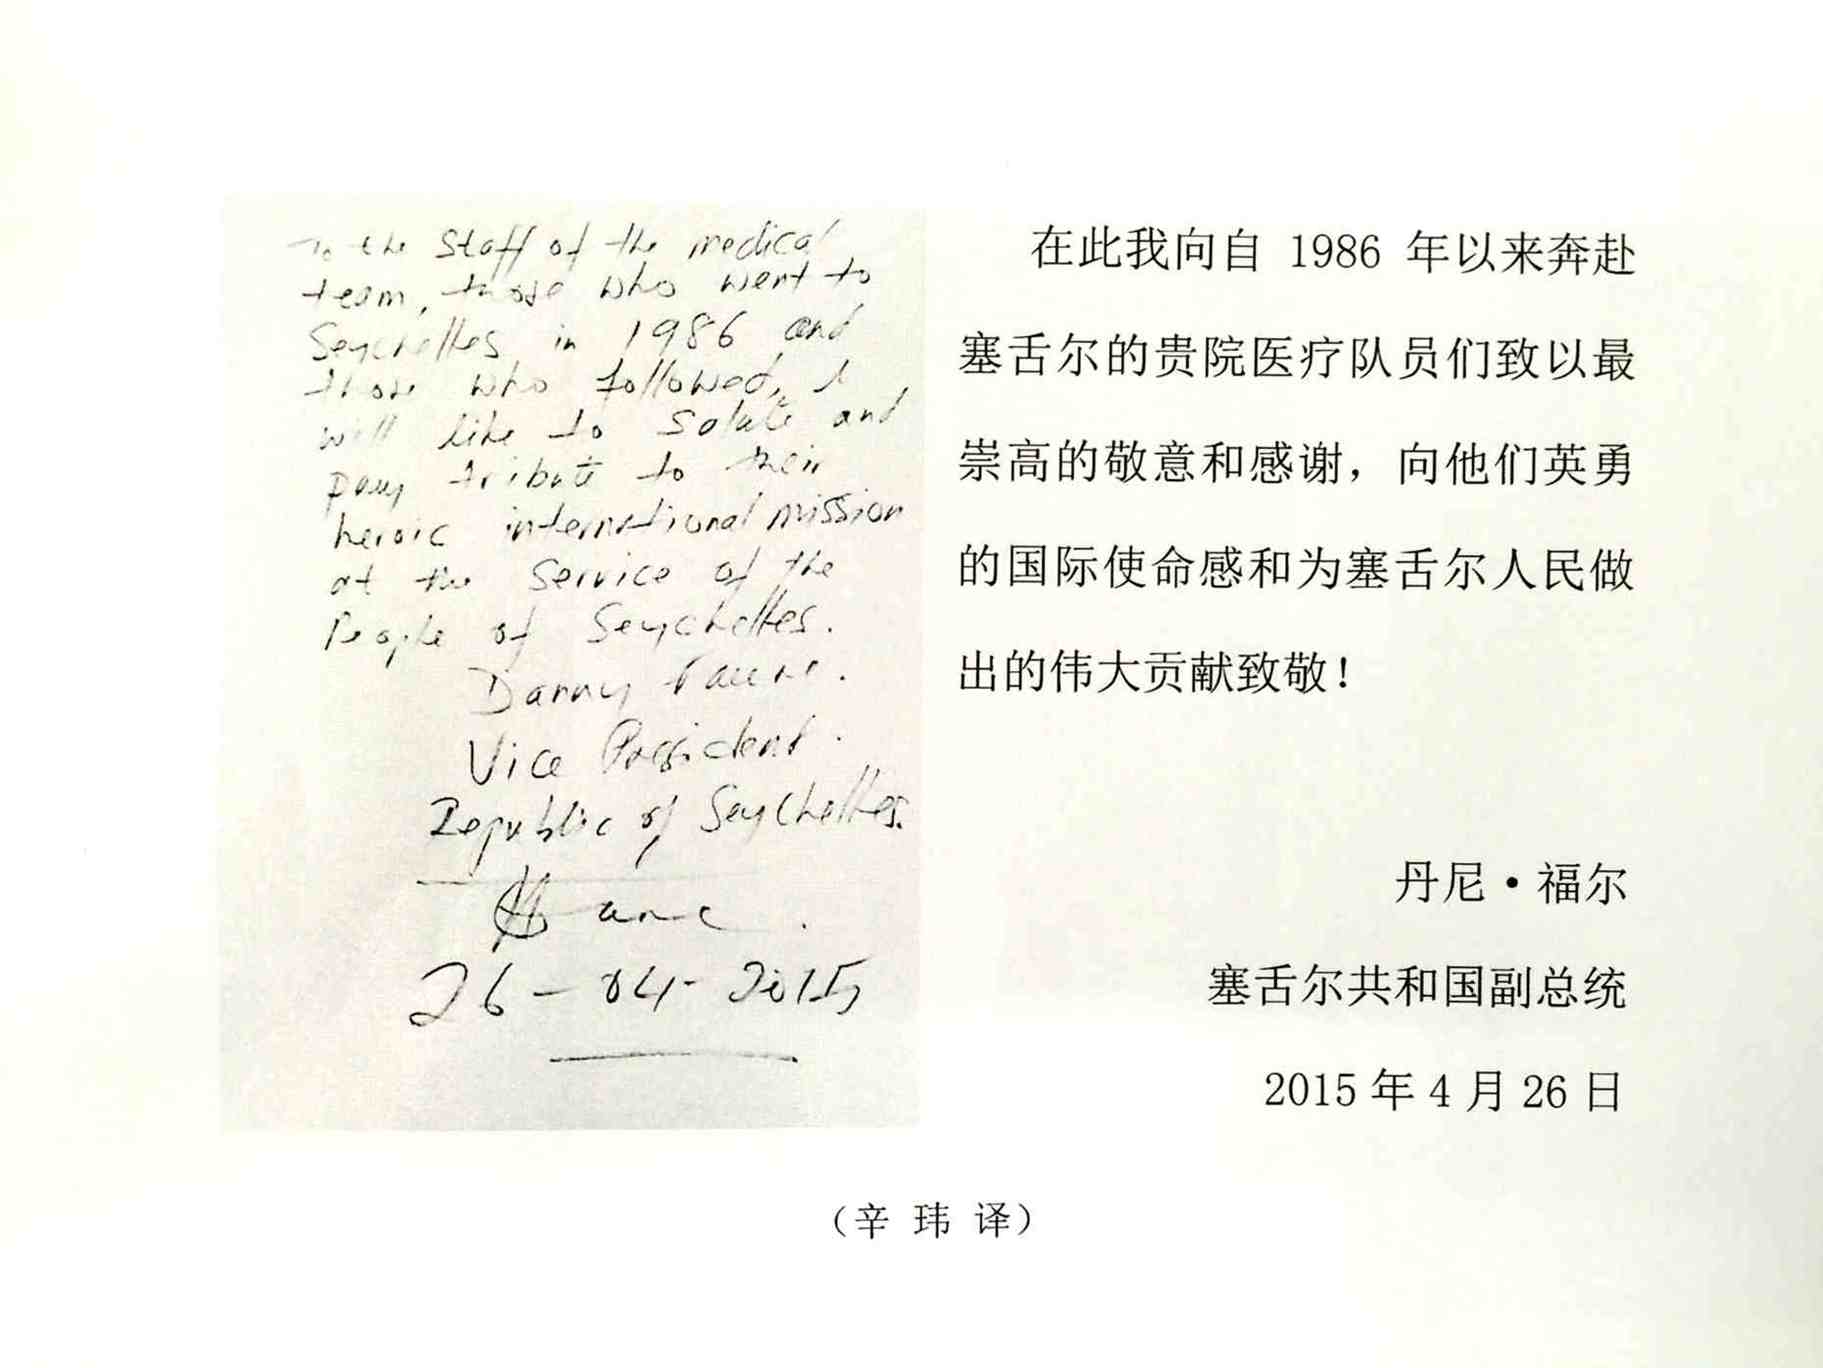 To the Staff of the medical
team, those who went to
Seychelles in 1986 and
those who followed, I
will like to salute and
pay tribute to their
heroic international mission
at the Service of the
People of Seychelles.
Danny Faure.
Vice President.
Republic of Seychelles.
26-04-2015
在此我向自 1986 年以来奔赴
塞舌尔的贵院医疗队员们致以最
崇高的敬意和感谢，向他们英勇
的国际使命感和为塞舌尔人民做
出的伟大贡献致敬！
丹尼·福尔
塞舌尔共和国副总统
2015年4月26日
（辛 玮 译）